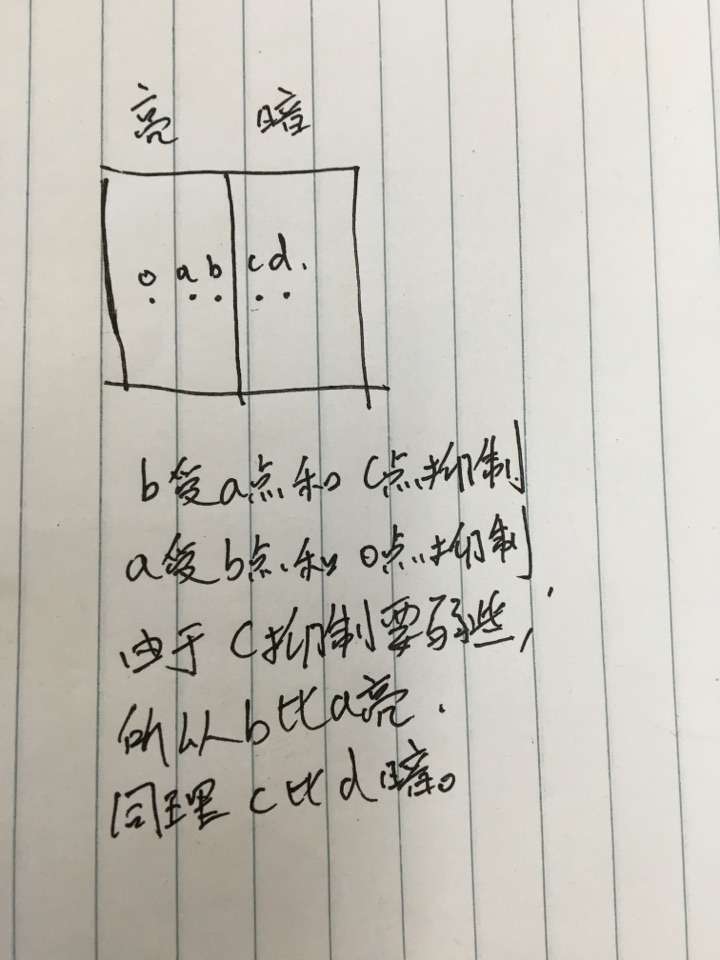 亮 暗
o a b c d.
b受a点和c点抑制
a受b点和o点抑制
由于c抑制要弱些,
所以b比a亮.
同理c比d暗。